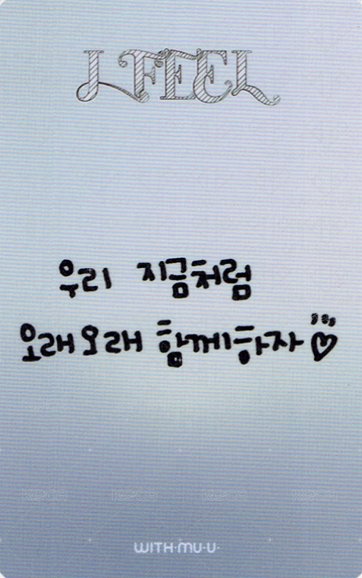 I FEEL
우리 지금처럼
오래오래 함께하자
WITH·MU·U·